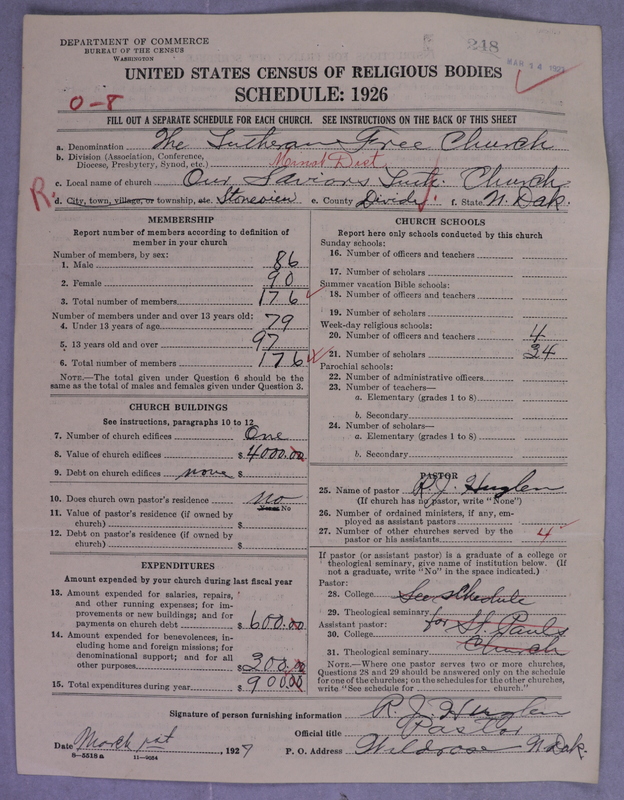 DEPARTMENT OF COMMERCE
BUREAU OF THE CENSUS
WASHINGTON
248
MAR 14 1927
UNITED STATES CENSUS OF RELIGIOUS BODIES
SCHEDULE: 1926
0-8
FILL OUT A SEPARATE SCHEDULE FOR EACH CHURCH. SEE INSTRUCTIONS ON THE BACK OF THIS SHEET
a. Denomination The Lutheran Free Church
b. Division (Association, Conference, Diocese, Presbytery, Synod, etc.) Minot Dist
c. Local name of church Our Saviors Luth. Church
R. d. City, town, village, or township, etc. Stoneview e. County Divide f. State N. Dak.
MEMBERSHIP
Report number of members according to definition of
member in your church
Number of members, by sex:
1. Male 86
2. Female 90
3. Total number of members 176
Number of members under and over 13 years old:
4. Under 13 years of age 79
5. 13 years old and over 97
6. Total number of members 176
NOTE.—The total given under Question 6 should be the
same as the total of males and females given under Question 3.
CHURCH BUILDINGS
See instructions, paragraphs 10 to 12
7. Number of church edifices One
8. Value of church edifices $4000.00
9. Debt on church edifices none $
10. Does church own pastor's residence no
Yes or No
11. Value of pastor's residence (if owned by
church) $
12. Debt on pastor's residence (if owned by
church) $
EXPENDITURES
Amount expended by your church during last fiscal year
13. Amount expended for salaries, repairs,
and other running expenses; for im-
provements or new buildings; and for
payments on church debt $600.00
14. Amount expended for benevolences, in-
cluding home and foreign missions; for
denominational support; and for all
other purposes $300.00
15. Total expenditures during year $900.00
CHURCH SCHOOLS
Report here only schools conducted by this church
Sunday schools:
16. Number of officers and teachers
17. Number of scholars
Summer vacation Bible schools:
18. Number of officers and teachers
19. Number of scholars
Week-day religious schools:
20. Number of officers and teachers 4
21. Number of scholars 34
Parochial schools:
22. Number of administrative officers
23. Number of teachers—
a. Elementary (grades 1 to 8)
b. Secondary
24. Number of scholars—
a. Elementary (grades 1 to 8)
b. Secondary
PASTOR
25. Name of pastor R. J. Huglen
(If church has no pastor, write "None")
26. Number of ordained ministers, if any, em-
ployed as assistant pastors
27. Number of other churches served by the
pastor or his assistants 4
If pastor (or assistant pastor) is a graduate of a college or
theological seminary, give name of institution below. (If
not a graduate, write "No" in the space indicated.)
Pastor:
28. College See schedule
29. Theological seminary for St. Pauls
Assistant pastor:
30. College Church
31. Theological seminary
NOTE.—Where one pastor serves two or more churches,
Questions 28 and 29 should be answered only on the schedule
for one of the churches; on the schedules for the other churches,
write "See schedule for church."
Signature of person furnishing information R. J. Huglen
Official title Pastor
Date March 1st, 1927 P. O. Address Wildrose N. Dak.
8-5518a 11-9654